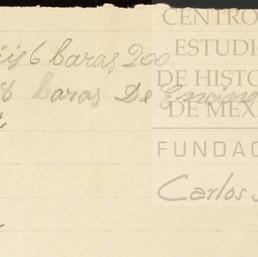 6 baras 200
8 baras De Encino
CENTRO
ESTUDI
DE HISTO
DE MÉX
FUNDAC
Carlos